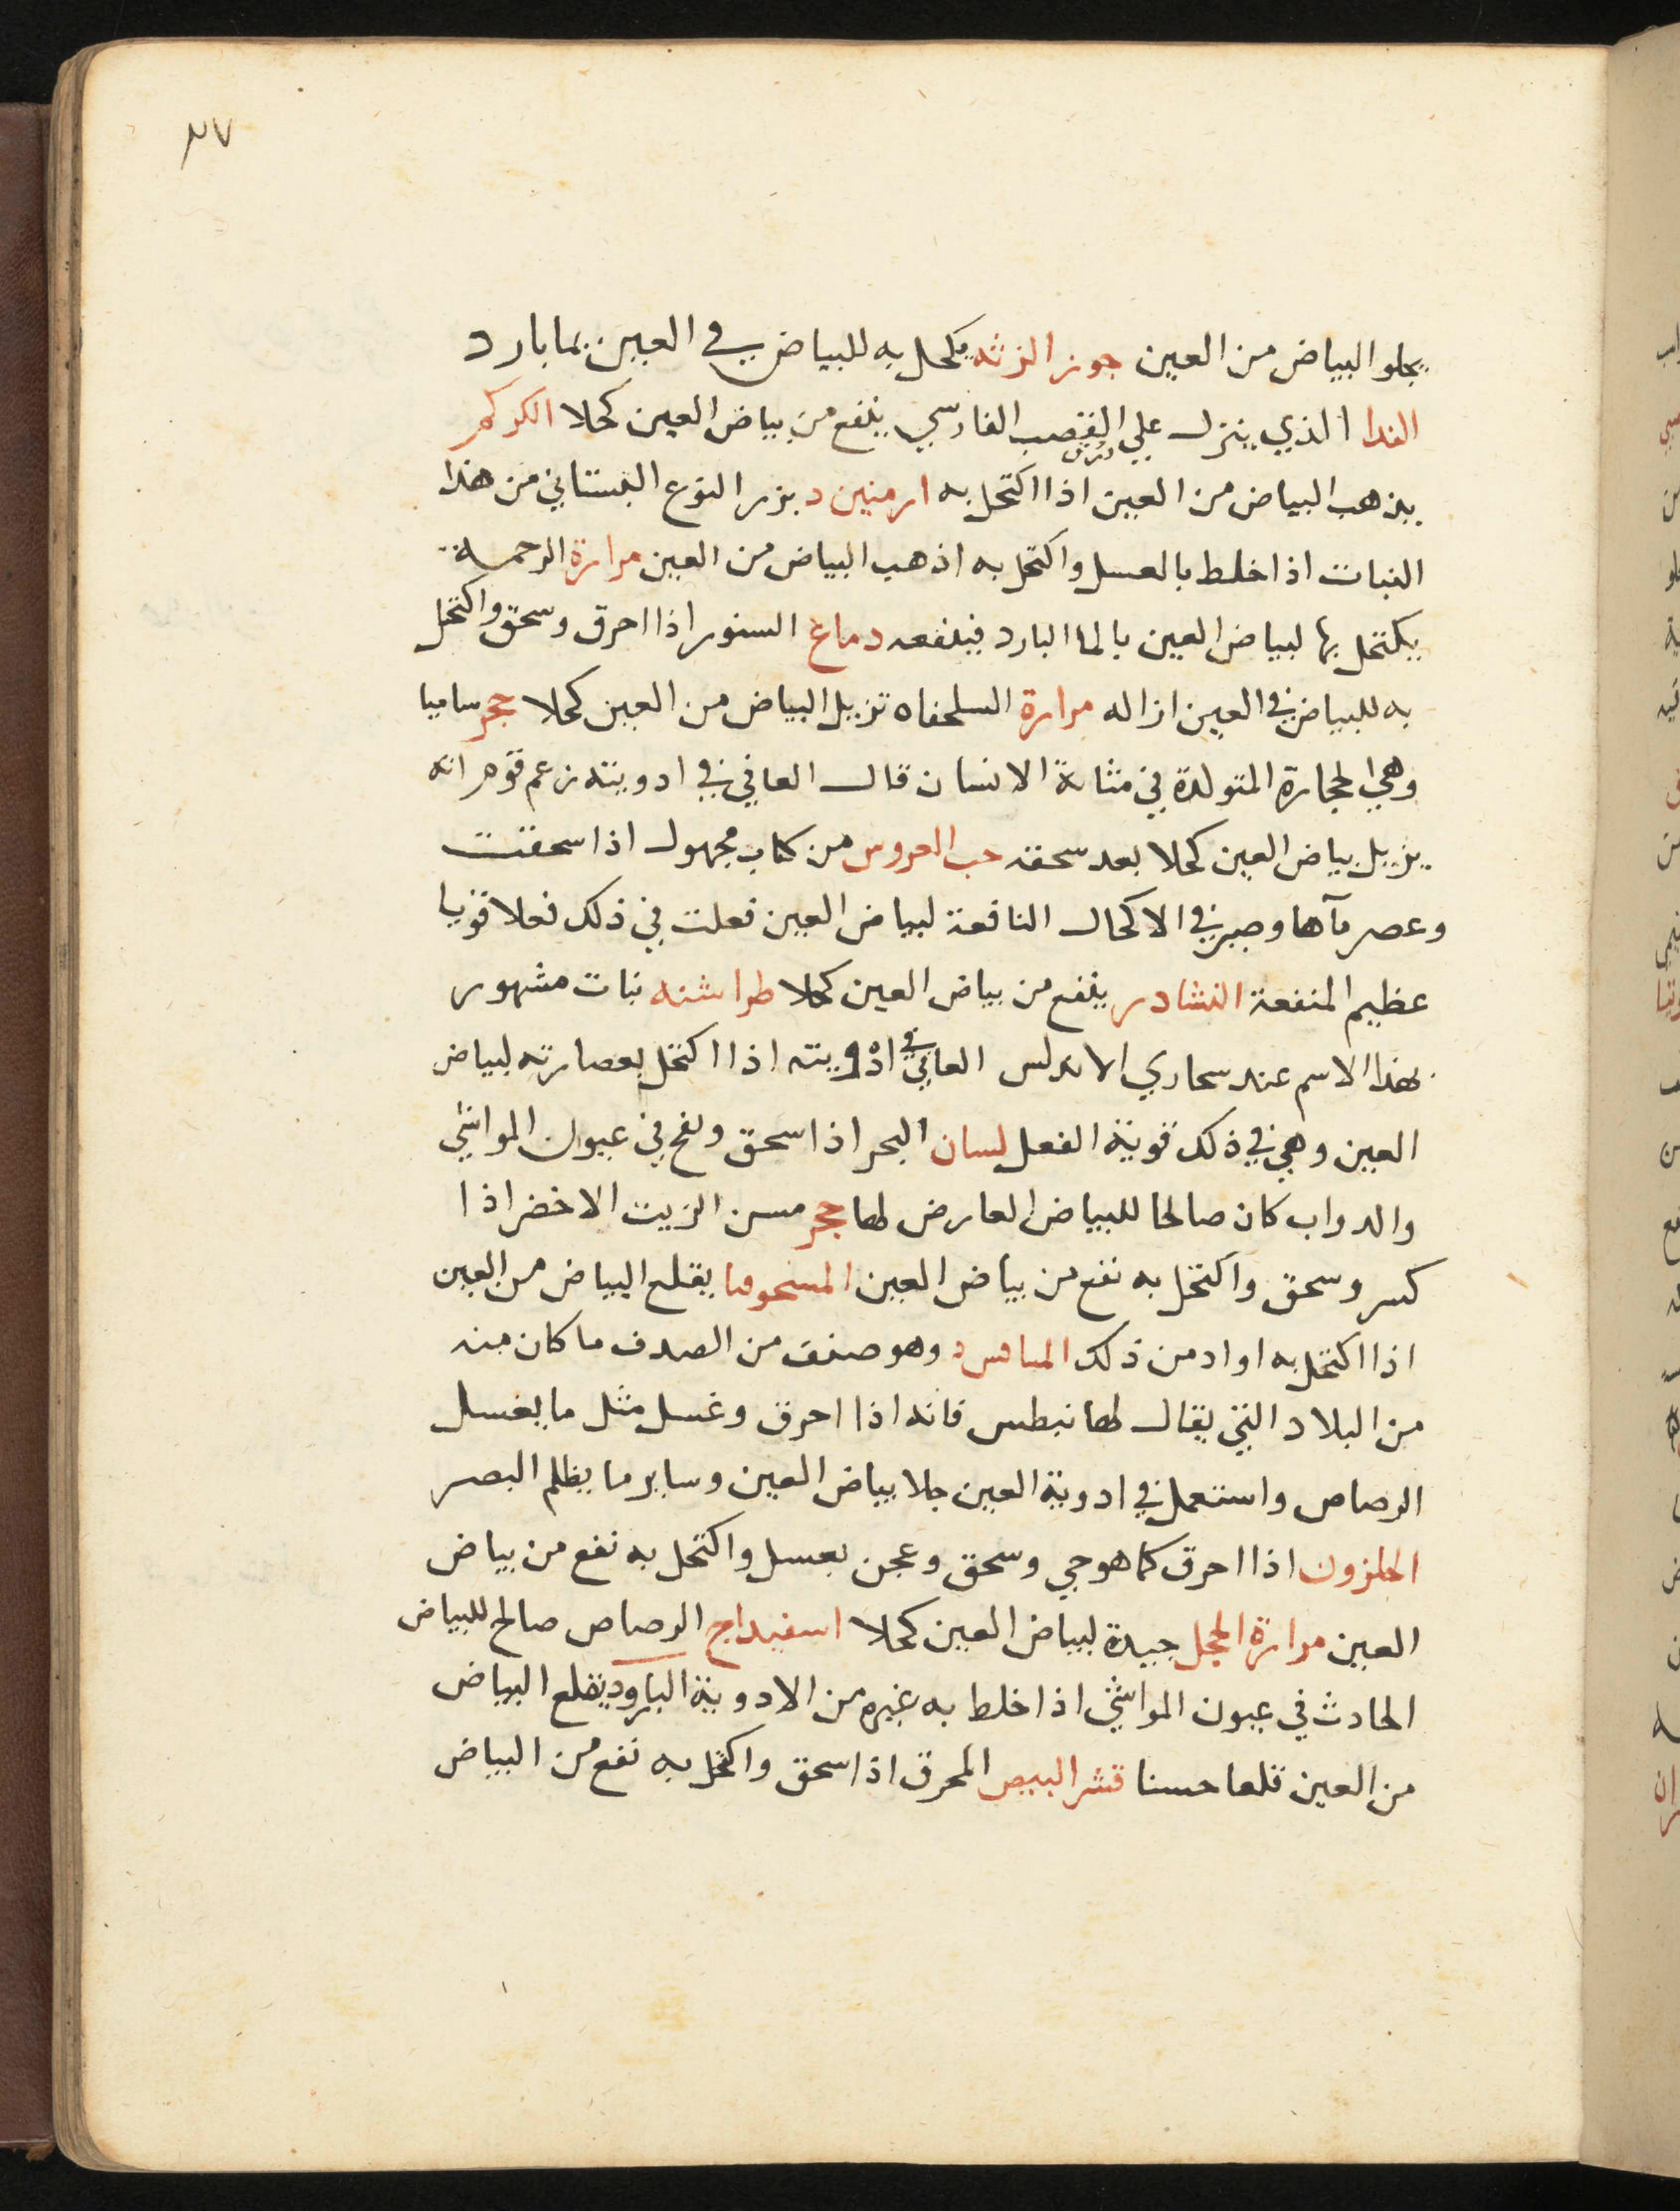 ٢٧
يجلو البياض من العين جوز الزثه يكحل به للبياض في العين بما بارد
الندا الذي ينزل علي القصب الفارسي ينفع من بياض العين كحلا الكركم
ورق
يذهب البياض من العين اذا اكتحل به ارمنين د بزر النوع البستاني من هذا
النبات اذا خلط بالعسل واكتحل به اذهب البياض من العين مرارة الرخمة
يكتحل بها لبياض العين بالما البارد فينفعه دماغ السنور اذا احرق وسحق واكتحل
به للبياض في العين ازاله مرارة السلحفاه تزيل البياض من العين كحلا حجر ساميا
وهي الحجارة المتولدة في مثانة الانسان قال الغافقي في ادويته زعم قوم انه
يزيل بياض العين كحلا بعد سحقه حب العروس من كتاب مجهول اذا سحقت
وعصر مآها وصير في الاكحال النافعة لبياض العين فعلت في ذلك فعلا قويا
عظيم المنفعة النشادر ينفع من بياض العين كحلا طراشنه نبات مشهور
بهذا الاسم عند سحاري الاندلس الغافقي في ادويته اذا اكتحل بعصارته لبياض
العين وهي في ذلك قوية الفعل لسان البحر اذا سحق ونفخ في عيون المواشي
والدواب كان صالحا للبياض العارض لها حجر مسن الزيت الاخضر اذا
كسر وسحق واكتحل به نفع من بياض العين المسحوقيا يقلع البياض من العين
اذا اكتحل به او ادمن ذلك وهو صنف من الصدف ما كان منه
من البلاد التي يقال لها نبطس فانه اذا احرق وغسل مثل ما يغسل
الرصاص واستعمل في ادوية العين جلا بياض العين وساير ما يظلم البصر
الحلزون اذا احرق كما هو حي وسحق وعجن بعسل واكتحل به نفع من بياض
العين مرارة الحجل جيدة لبياض العين كحلا اسفيداج الرصاص صالح للبياض
الحادث في عيون المواشي اذا خلط به غيره من الادوية البارود يقلع البياض
من العين قلعا حسنا قشر البيض المحرق اذا سحق واكتحل به نفع من البياض